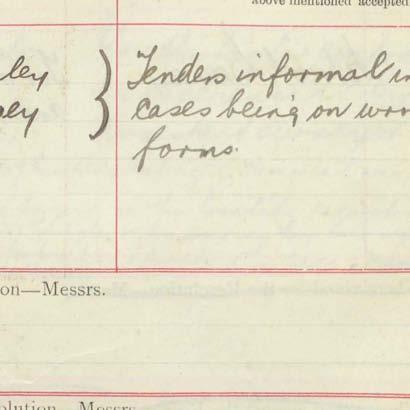 above mentioned accepted
ley Tenders informal in
ey cases being on wro
forms.
on—Messrs.
olution—Messrs.